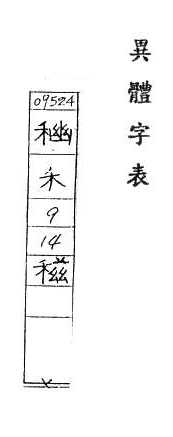 異體字表
09524
禾
9
14
稵